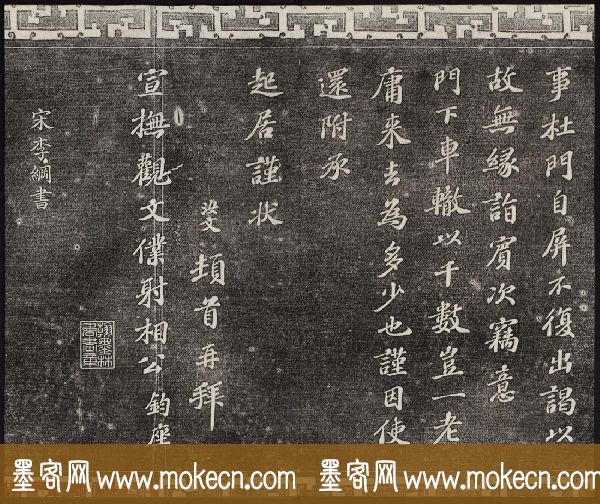 事杜門自屏不復出謁以
故無緣詣賓次竊意
門下車轍以千數豈一老
庸來去為多少也謹因使
還附承
起居謹狀
頓首再拜
宣撫觀文僕射相公 鈞座
宋李綱書
翰墨林書畫章
墨客网 www.mokecn.com 墨客网 www.mokecn.com